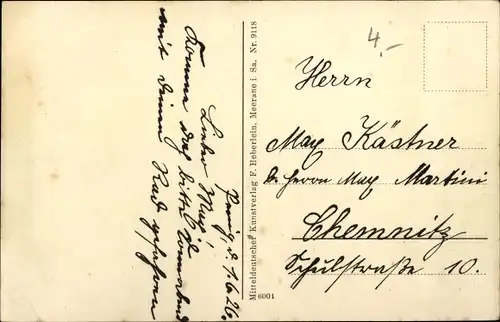 Penig, d. 1.6.26.
Lieber Max!
Komme doch bitte Sonnabend
mit deinem Rad gefahren
Mitteldeutscher Kunstverlag F. Heberlein, Meerane i. Sa. Nr. 9118
6001
4.-
Herrn
Max Kästner
bei Herrn Max Martini
Chemnitz
Schulstraße 10.